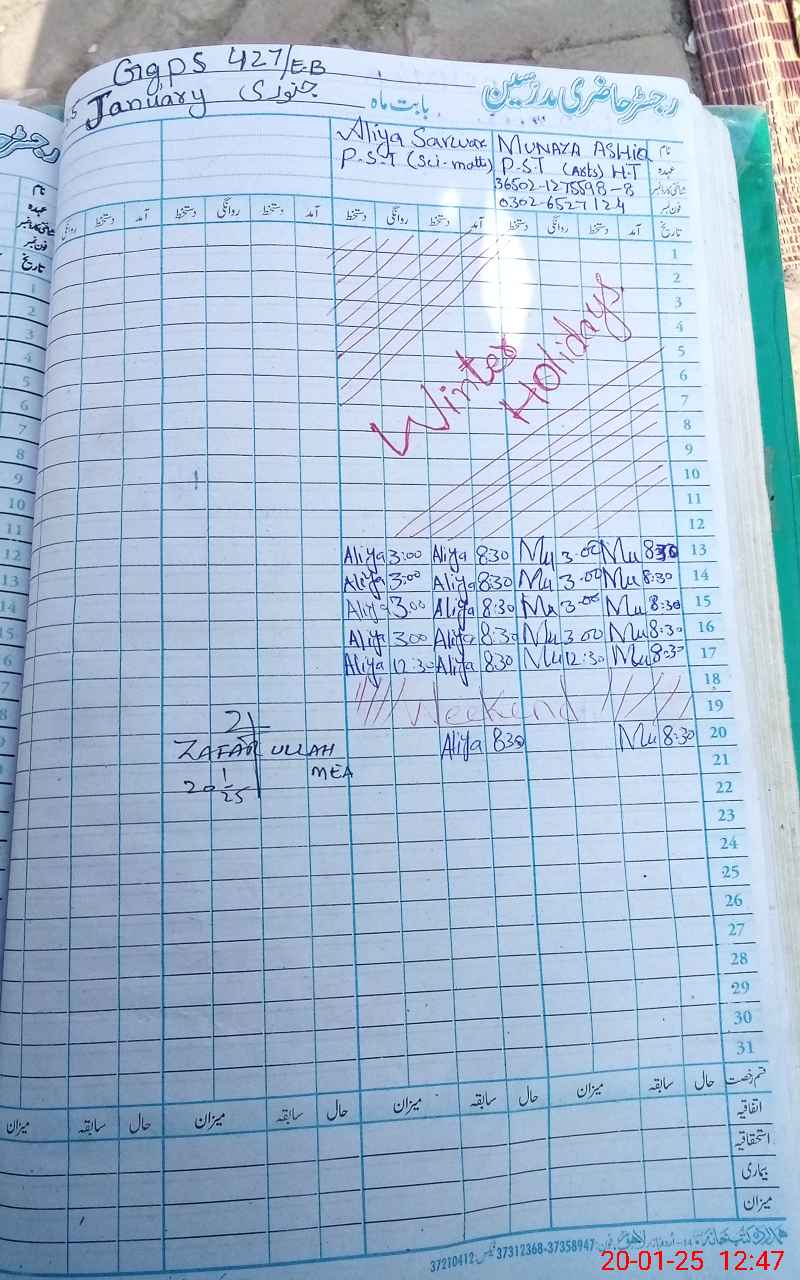 GgPS 427/E.B
January جنوری
بابت ماہ
رجسٹر حاضری مدرسین
Aliya Sarwar
P.S.T (Sci-math)
MUNAZA ASHIQ
P.S.T (Arts) H.T
36502-1275598-8
0302-6527124
نام
عہدہ
فون نمبر
تاریخ آمد دستخط روانگی دستخط آمد دستخط روانگی دستخط آمد دستخط روانگی دستخط آمد دستخط روانگی
1
2
3
4
5
6
7
8
9
10
11
12
Winter
Holidays.
Aliya 3:00 Aliya 8:30 Mu 3.00 Mu 8:30 13
Aliya 3:00 Aliya 8:30 Mu 3.00 Mu 8:30 14
Aliya 3.00 Aliya 8:30 Mu 3.00 Mu 8:30 15
Aliya 3.00 Aliya 8:30 Mu 3.00 Mu 8:30 16
Aliya 12:30 Aliya 8:30 Mu 12:30 Mu 8:30 17
18
Weekend 19
Aliya 8:30 Mu 8:30 20
21
22
23
24
25
26
27
28
29
30
31
ZAFAR ULLAH
MEA
20 1/25
قسم رخصت حال سابقہ میزان حال سابقہ میزان حال سابقہ میزان حال سابقہ میزان
اتفاقیہ
استحقاقیہ
بیماری
میزان
فون: 37312368-37358947 فیکس: 37210412
20-01-25 12:47
نام
عہدہ
فون نمبر
تاریخ
1
2
3
4
5
6
7
8
9
10
11
12
13
14
15